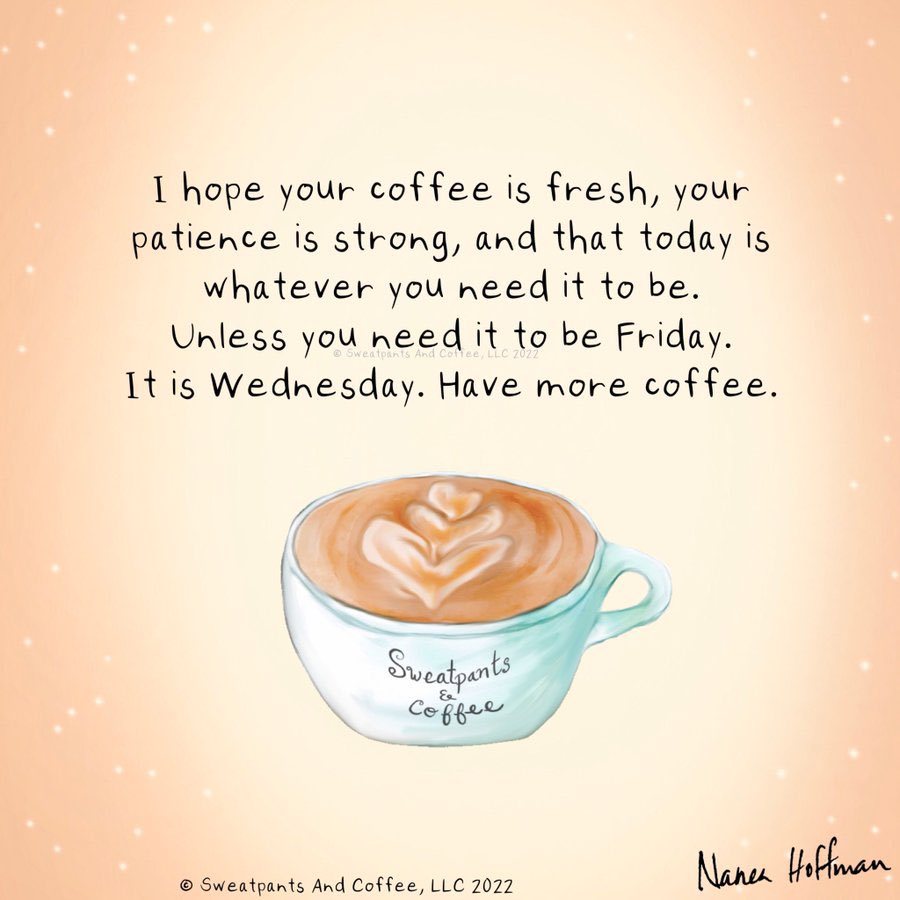 I hope your coffee is fresh, your
patience is strong, and that today is
whatever you need it to be.
Unless you need it to be Friday.
© Sweatpants And Coffee, LLC 2022
It is Wednesday. Have more coffee.
Sweatpants
&
Coffee
Nanea Hoffman
© Sweatpants And Coffee, LLC 2022